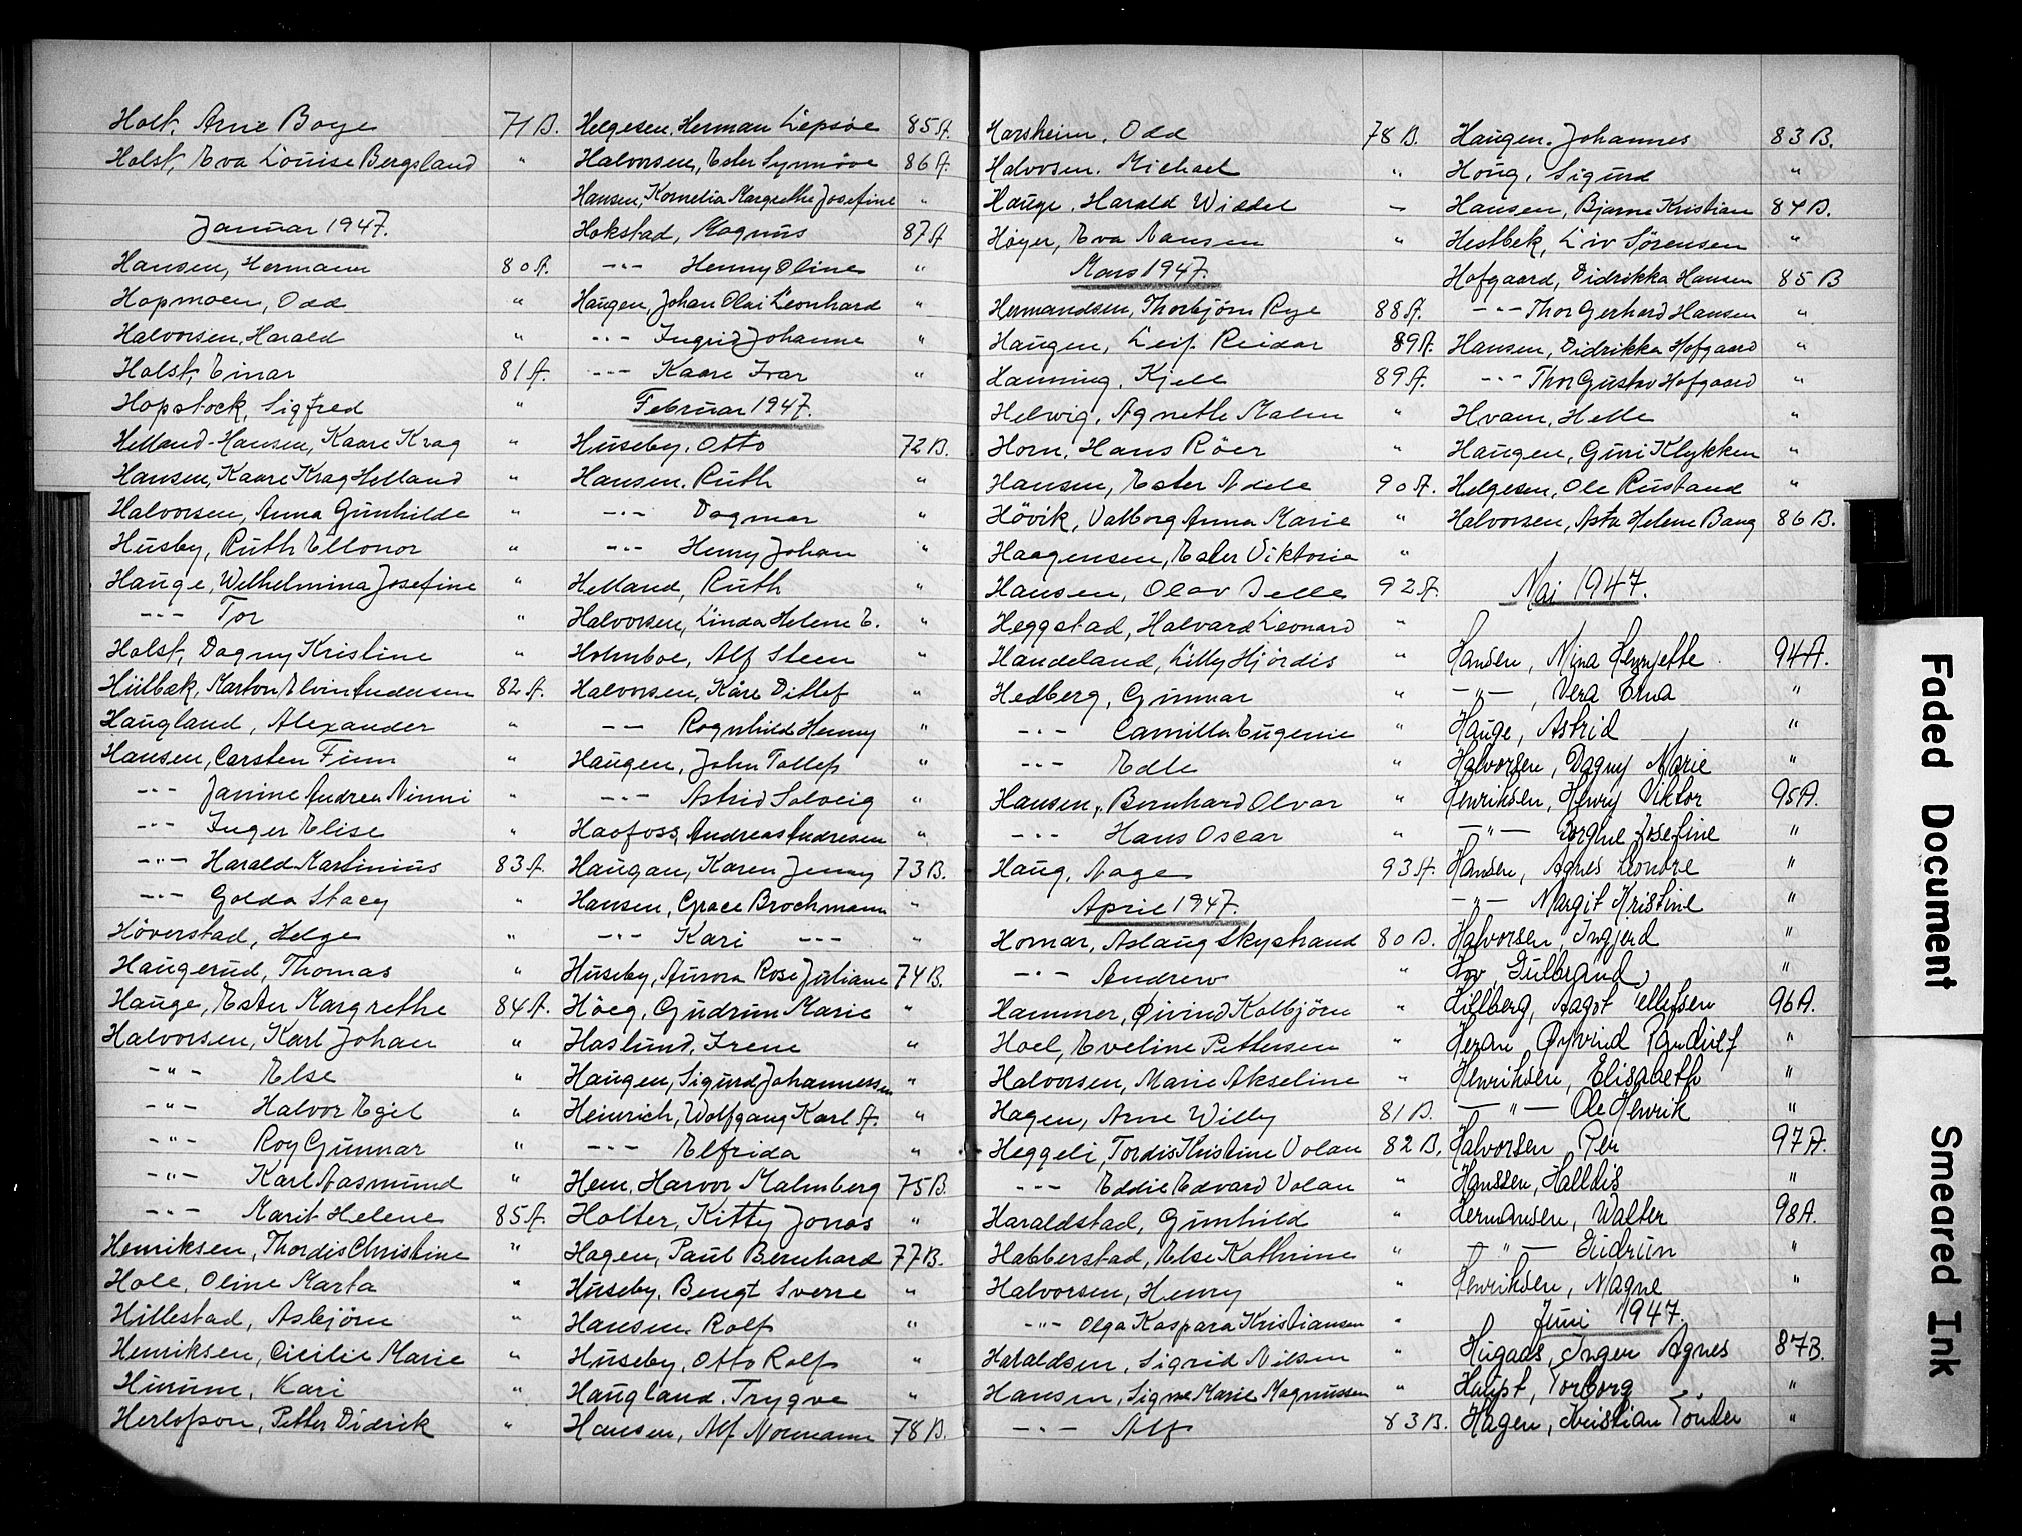 Holst, Arne Boye 71B.
Holst, Eva Louise Bergsland "
Januar 1947.
Hansen, Hermann 80A.
Hopmoen, Odd "
Halvorsen, Harald "
Holst, Einar 81A.
Hopstock, Sigfred "
Helland-Hansen, Kaare Krag "
Hansen, Kaare Krag Helland "
Halvorsen, Anna Gunhilde "
Husby, Ruth Ellonor "
Hauge, Wilhelmina Josefine "
-"- Tor "
Holst, Dagny Kristine "
Hülbæk, Marton Elvin Andersen 82A.
Haugland, Alexander "
Hansen, Carsten Finn "
-"- Janine Andrea Ninni "
-"- Inger Elise "
-"- Harald Martinius 83A.
-"- Golda Stacy "
Höverstad, Helge "
Haugerud, Thomas "
Hauge, Ester Margrethe 84A.
Halvorsen, Karl Johan "
-"- Else "
-"- Halvor Egil "
-"- Roy Gunnar "
-"- Karl Aasmund "
-"- Marit Helene 85A.
Henriksen, Thordis Christine "
Hole, Oline Marta "
Hillestad, Asbjörn "
Henriksen, Cicilie Marie "
Hurum, Kari "
Herlofson, Petter Didrik "
Helgesen, Herman Lepsöe 85A.
Halvorsen, Ester Synnöve 86A.
Hansen, Kornelia Margrethe Josefine "
Hokstad, Magnus 87A
-"- Henny Oline "
Haugen, Johan Olai Leonhard "
-"- Ingrid Johanne "
-"- Kaare Ivar "
Februar 1947.
Huseby, Otto 72B.
Hansen, Ruth "
-"- Dagmar "
-"- Henry Johan "
Helland, Ruth "
Halvorsen, Linda Helene E. "
Holmboe, Alf Steen "
Halvorsen, Kåre Ditlef "
-"- Ragnhild Henny "
Haugen, John Tollef "
-"- Astrid Solveig "
Haafoss, Andreas Andresen "
Haugan, Karen Jenny 73B.
Hansen, Grace Brochmann "
-"- Kari -"- "
Huseby, Aurora Rose Juliane 74B.
Höeg, Gudrun Marie "
Haslund, Irene "
Haugen, Sigurd Johannessen "
Heinrich, Wolfgang Karl A. "
-"- Elfrida "
Hem, Harvor Malmberg 75B.
Holter, Kitty Jonas "
Hagen, Paul Bernhard 77B.
Huseby, Bengt Sverre "
Hansen, Rolf "
Huseby, Otto Rolf "
Haugland, Trygve "
Hansen, Alf Normann 78B.
Harsheim, Odd 78B.
Halvorsen, Michael "
Hauge, Harald Widdel "
Høyer, Eva Nansen "
Mars 1947.
Hermandsen, Thorbjörn Rye 88A.
Haugen, Leif Reidar 89A.
Hanning, Kjell 89A.
Helwig, Agnethe Malm "
Horn, Hans Röer "
Hansen, Ester Adele 90A.
Hövik, Valborg Anna Marie "
Haagensen, Ester Viktoria "
Hansen, Olav Selle 92A.
Heggstad, Halvard Leonard "
Handeland, Lilly Hjördis "
Hedberg, Gunnar "
-"- Camilla Eugenie "
-"- Edle "
Hansen, Bernhard Alvar "
-"- Hans Oscar "
Haug, Aage 93A.
April 1947.
Homar, Aslaug Skystrand 80B.
-"- Andrew "
Hammer, Øivind Kolbjörn "
Hoel, Eveline Pettersen "
Halvorsen, Marie Akseline "
Hagen, Arne Willy 81B.
Heggeli, Tordis Kristine Volan 82B.
-"- Eddie Edvard Volan "
Haraldstad, Gunhild "
Habberstad, Else Kathrine "
Halvorsen, Henry "
-"- Olga Kaspara Kristiansen "
Haraldsen, Sigrid Nilsen "
Hansen, Signe Marie Magnussen "
-"- Alf 83B.
Haugen, Johannes 83B.
Houg, Sigurd "
Hansen, Bjarne Kristian 84B.
Hestbek, Liv Sörensen "
Hofgaard, Didrikka Hansen 85B
-"- Thor Gerhard Hansen "
Hansen, Didrikka Hofgaard "
-"- Thor Gustav Hofgaard "
Hvam, Helle "
Haugen, Guri Klykken "
Helgesen, Ole Rustand "
Halvorsen, Asta Helene Bang 86B.
Mai 1947.
Hansen, Nina Henjette 94A.
-"-, Vera Erna "
Hauge, Astrid "
Halvorsen, Dagny Marie "
Henriksen, Henry Viktor 95A.
-"- Borghil Josefine "
Hansen, Agnes Leonore "
-"- Margit Kristine "
Halvorsen, Ingjerd "
Hov, Gulbrand "
Hillberg, Aagot Tellefsen 96A.
Heran Øyvind Randulf "
Henriksen, Elisabeth "
-"- Ole Henrik "
Halvorsen Per 97A.
Hanssen, Halldis "
Hermansen, Walter 98A.
-"- Gudrun "
Henriksen, Magne "
Juni 1947.
Hugaas, Inger Agnes 87B.
Haupt, Torborg "
Hagen, Kristian Tönder "
Faded Document
Smeared Ink